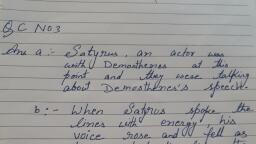 Q C No 3
Ans a :- Satyrus, an actor was
with Demosthenes at this
point and they were talking
about Demosthenes's speech.
b :- When Satyrus spoke the
lines with energy, his
voice rose and fell as